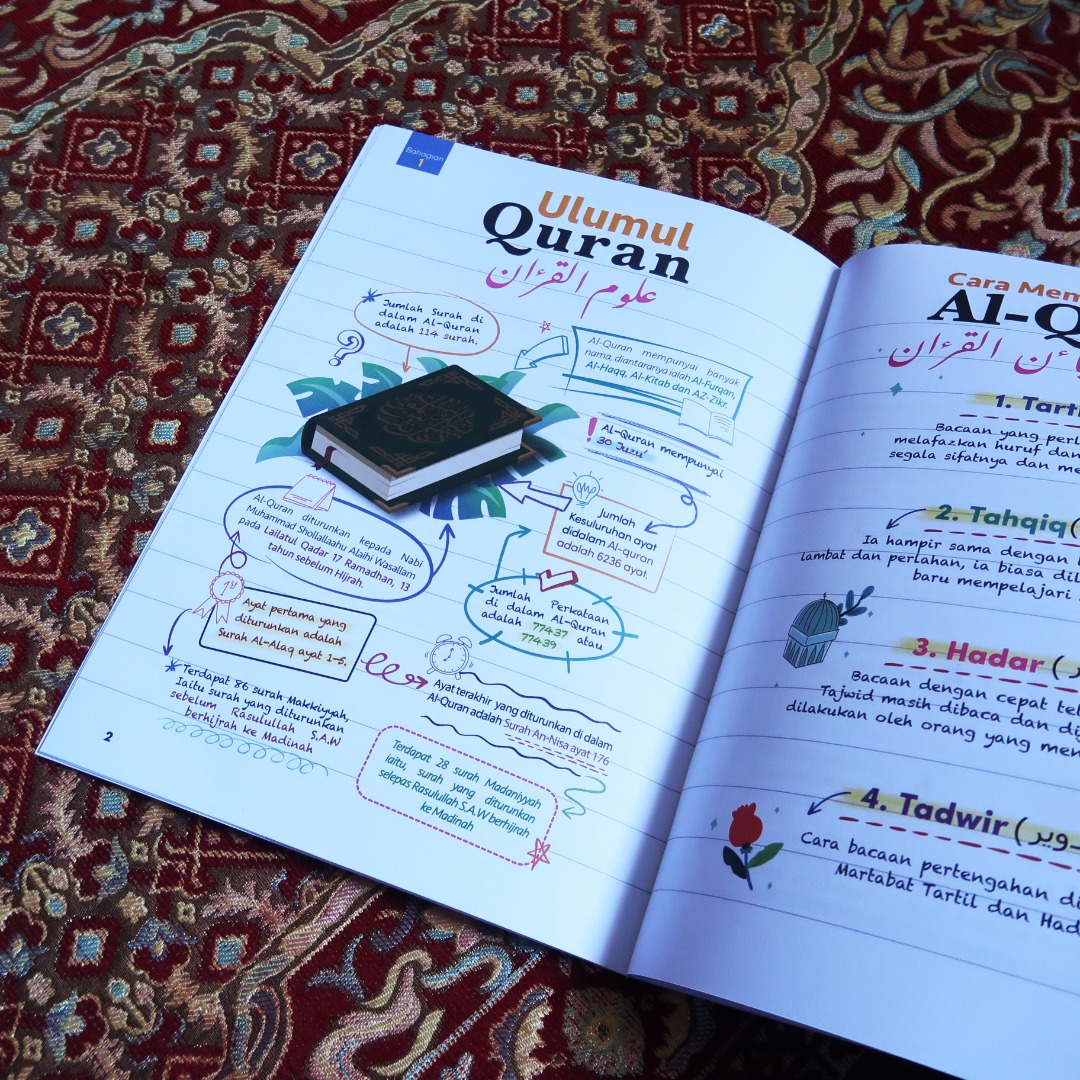 Bahagian
1
Ulumul
Quran
علوم القرءان
Jumlah Surah di
dalam Al-Quran
adalah 114 surah.
Al-Quran mempunyai banyak
nama, diantaranya ialah Al-Furqan,
Al-Haqq, Al-Kitab dan AZ-Zikr.
Al-Quran mempunyai
30 Juzu'
Jumlah
Kesuluruhan ayat
didalam Al-quran
adalah 6236 ayat.
Al-Quran diturunkan kepada Nabi
Muhammad Shollallaahu Alaihi Wasallam
pada Lailatul Qadar 17 Ramadhan, 13
tahun sebelum Hijrah.
Jumlah Perkataan
di dalam Al-Quran
adalah 77437 atau
77439
1st
Ayat pertama yang
diturunkan adalah
Surah Al-Alaq ayat 1-5.
Terdapat 86 surah Makkiyyah,
Iaitu surah yang diturunkan
sebelum Rasulullah S.A.W
berhijrah ke Madinah
Ayat terakhir yang diturunkan di dalam
Al-Quran adalah Surah An-Nisa ayat 176
Terdapat 28 surah Madaniyyah
Iaitu, surah yang diturunkan
selepas Rasulullah S.A.W berhijrah
ke Madinah
2
Cara Mem
Al-Q
القرءان
1. Tarti
Bacaan yang perl
melafazkan huruf dan
segala sifatnya dan me
2. Tahqiq (
Ia hampir sama dengan
lambat dan perlahan, ia biasa dil
baru mempelajari
3. Hadar (
Bacaan dengan cepat tet
Tajwid masih dibaca dan di
dilakukan oleh orang yang mem
4. Tadwir (
Cara bacaan pertengahan di
Martabat Tartil dan Had